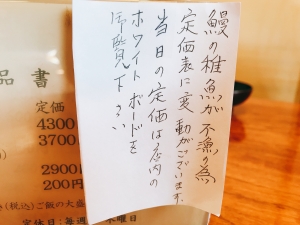 鰻の稚魚が不漁の為
定価表に変動がございます、
当日の定価は店内の
ホワイトボードを
御覧下さい
品書
定価
4300
3700
2900円
200円
(税込)ご飯の大盛
定休日:毎週
木曜日